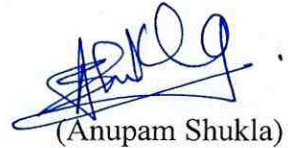 (Anupam Shukla)